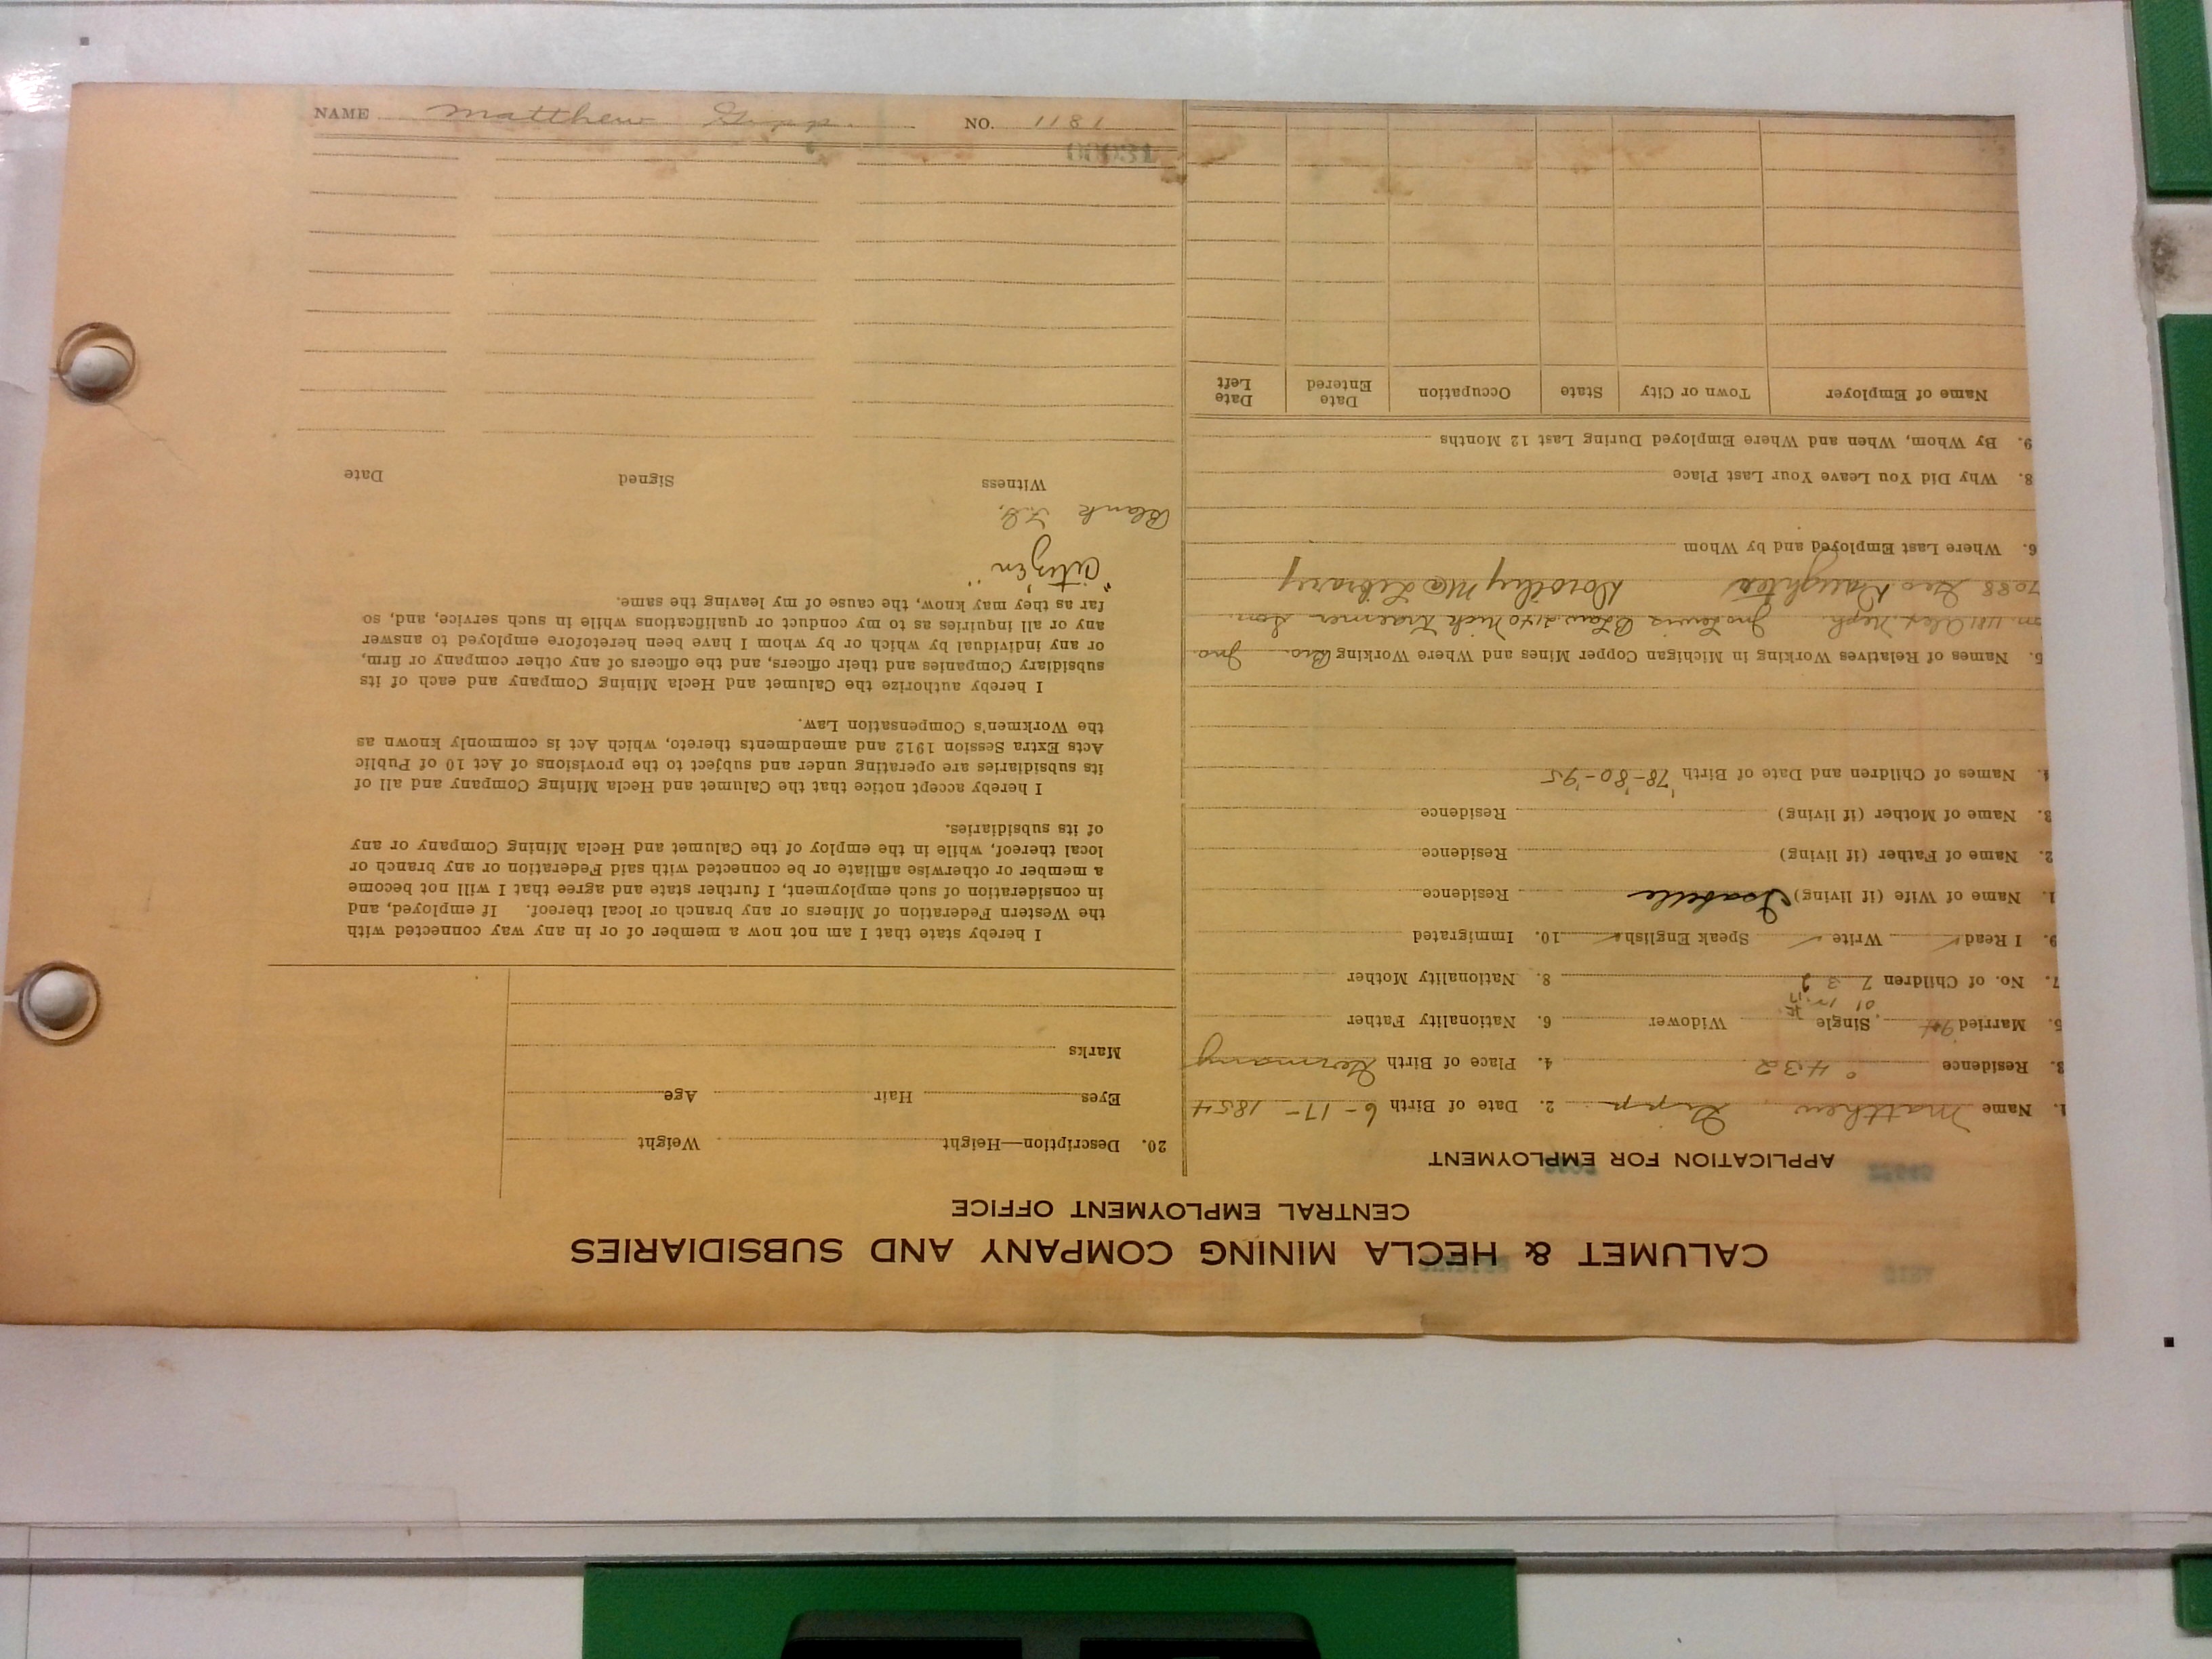 CALUMET & HECLA MINING COMPANY AND SUBSIDIARIES
CENTRAL EMPLOYMENT OFFICE
APPLICATION FOR EMPLOYMENT
1. Name Matthew Gipp 2. Date of Birth 6-17-1854
3. Residence 432 4. Place of Birth Germany
5. Married Single Widower 6. Nationality Father
7. No. of Children 7 3 8. Nationality Mother
9. I Read ✓ Write ✓ Speak English ✓ 10. Immigrated
1. Name of Wife (if living) Isabelle Residence
2. Name of Father (if living) Residence
3. Name of Mother (if living) Residence
4. Names of Children and Date of Birth '78-'80-'95
5. Names of Relatives Working in Michigan Copper Mines and Where Working Bro Jno.
Alex Neph. Jno Lewis BLaw Nick Kraemer Son
7088 Geo Daughter Dorothy Library
6. Where Last Employed and by Whom
8. Why Did You Leave Your Last Place
9. By Whom, When and Where Employed During Last 12 Months
Name of Employer Town or City State Occupation Date Entered Date Left
20. Description—Height Weight
Eyes Hair Age
Marks
I hereby state that I am not now a member of or in any way connected with
the Western Federation of Miners or any branch or local thereof. If employed, and
in consideration of such employment, I further state and agree that I will not become
a member or otherwise affiliate or be connected with said Federation or any branch or
local thereof, while in the employ of the Calumet and Hecla Mining Company or any
of its subsidiaries.
I hereby accept notice that the Calumet and Hecla Mining Company and all of
its subsidiaries are operating under and subject to the provisions of Act 10 of Public
Acts Extra Session 1912 and amendments thereto, which Act is commonly known as
the Workmen's Compensation Law.
I hereby authorize the Calumet and Hecla Mining Company and each of its
subsidiary Companies and their officers, and the officers of any other company or firm,
or any individual by which or by whom I have been heretofore employed to answer
any or all inquiries as to my conduct or qualifications while in such service, and, so
far as they may know, the cause of my leaving the same.
"Citizen"
Blank
Witness Signed Date
NAME Matthew Gipp NO. 1181